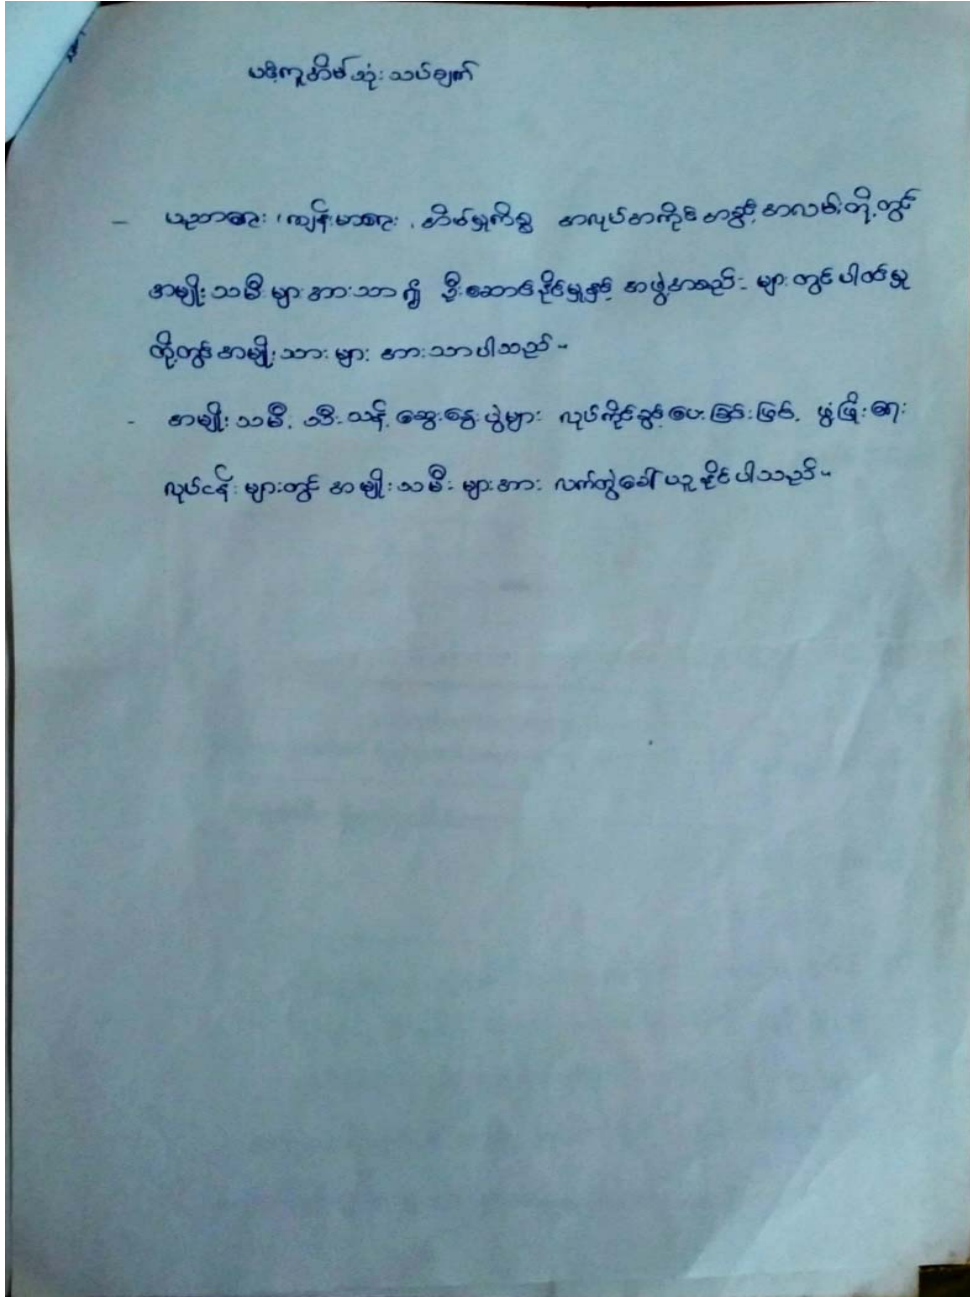 ပဒိုကူအိမ်သုံးသပ်ချက်
- ပညာရေး၊ ကျန်းမာရေး၊ အိမ်မှုကိစ္စ အလုပ်အကိုင် အခွင့်အလမ်းတို့တွင်
အမျိုးသမီးများအားသာ၍ ဦးဆောင်နိုင်မှုနှင့် အဖွဲ့အစည်းများတွင်ပါဝင်မှု
တို့တွင်အမျိုးသားများ အားသာပါသည်။
- အမျိုးသမီး သီးသန့်ဆွေးနွေးပွဲများ လုပ်ကိုင်ခွင့်ပေးခြင်းဖြင့် ဖွံ့ဖြိုးရေး
လုပ်ငန်းများတွင် အမျိုးသမီးများအား လက်တွဲခေါ်ယူနိုင်ပါသည်။